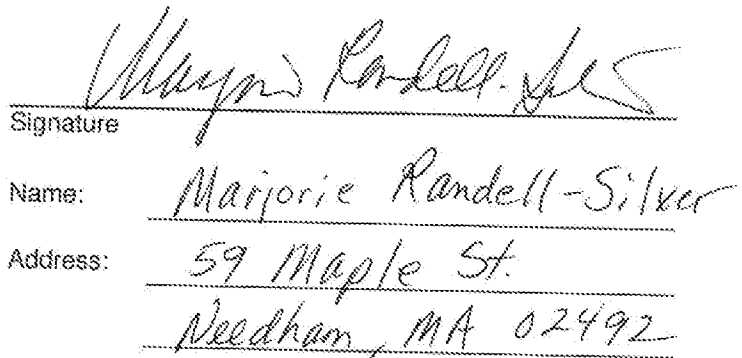 Marjorie Randell-Silver
Signature
Name: Marjorie Randell-Silver
Address: 59 Maple St.
Needham, MA 02492